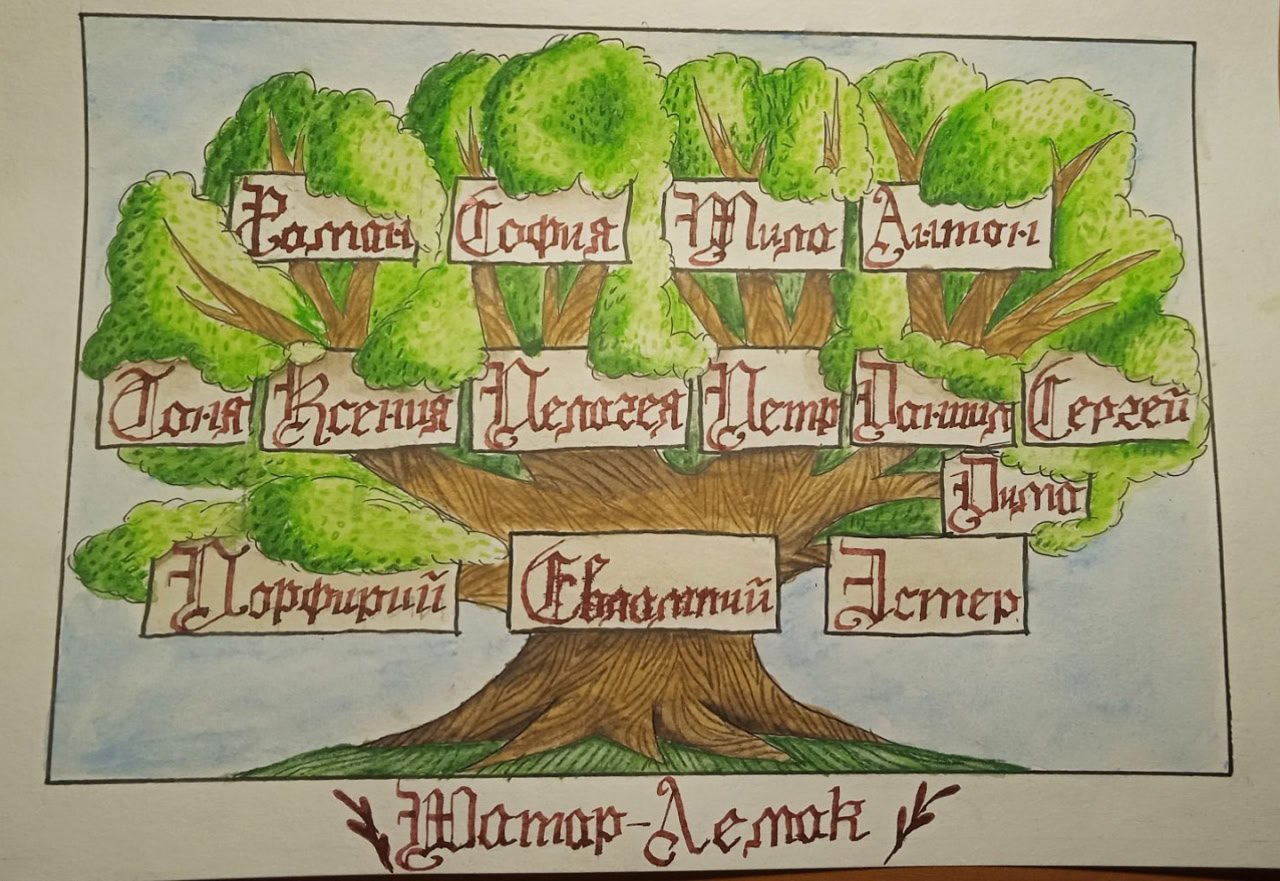 Роман София Мила Антон
Тоня Ксения Пелагея Петр Даниил Сергей
Дима
Порфирий Евлампий Эстер
Матар-Лемак